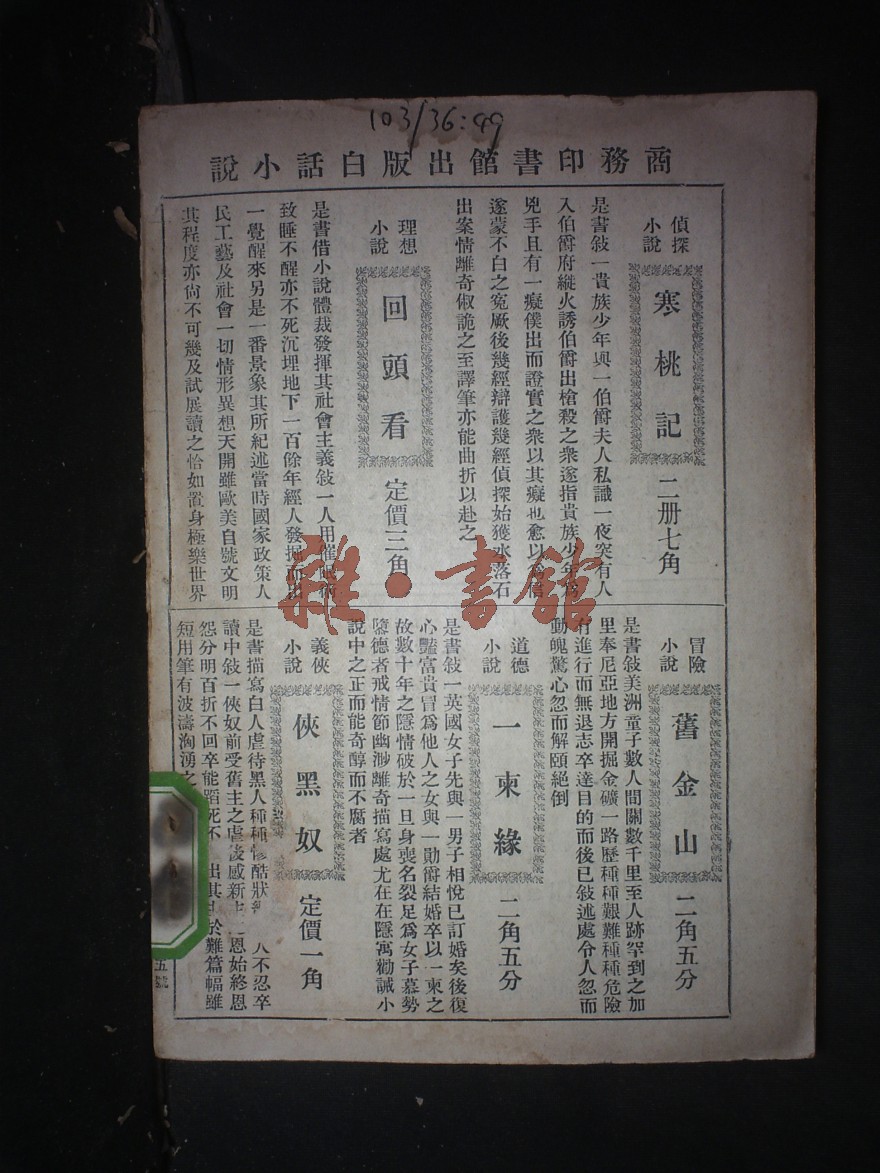 103/36:49
商務印書館出版白話小說
偵探
小說
寒桃記
二册七角
是書敍一貴族少年與一伯爵夫人私識一夜突有人
入伯爵府縱火誘伯爵出槍殺之衆遂指貴族少年爲
兇手且有一癡僕出而證實之衆以其癡也愈以爲信
遂蒙不白之冤厥後幾經辯護幾經偵探始獲水落石
出案情離奇俶詭之至譯筆亦能曲折以赴之
理想
小說
回頭看
定價三角
是書借小說體裁發揮其社會主義敍一人用催眠術
致睡不醒亦不死沉埋地下一百餘年經人發掘而出
一覺醒來另是一番景象其所紀述當時國家政策人
民工藝及社會一切情形異想天開雖歐美自號文明
其程度亦尙不可幾及試展讀之恰如置身極樂世界
冒險
小說
舊金山
二角五分
是書敍美洲童子數人間關數千里至人跡罕到之加
里奉尼亞地方開掘金礦一路歷種種艱難種種危險
有進行而無退志卒達目的而後已敍述處令人忽而
動魄驚心忽而解頤絕倒
道德
小說
一柬緣
二角五分
是書敍一英國女子先與一男子相悅已訂婚矣後復
心豔富貴冒爲他人之女與一勛爵結婚卒以一柬之
故數十年之隱情破於一旦身喪名裂足爲女子慕勢
隳德者戒情節幽渺離奇描寫處尤在在隱寓勸誡小
說中之正而能奇醇而不腐者
義俠
小說
俠黑奴
定價一角
是書描寫白人虐待黑人種種慘酷狀 人不忍卒
讀中敍一俠奴前受舊主之虐後感新主 恩始終恩
怨分明百折不回卒能蹈死不 出其 於難篇幅雖
短用筆有波濤洶湧之
五號
雜·書館